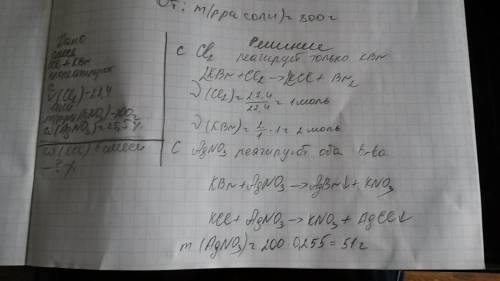 От: m(рра соли) = 800г
Дано
смесь
KCl + KBr
реагируют
с
V(Cl₂) - 22,4
или
m рра(AgNO₃) - 200г
ω(AgNO₃) = 25,5 %
ω(KCl) в смеси
- ? %
Решение
С Cl₂ реагирует только KBr
2KBr + Cl₂ → 2KCl + Br₂
ν(Cl₂) = 22,4/22,4 = 1 моль
ν(KBr) = 2/1 · 1 = 2 моль
С AgNO₃ реагируют оба в-ва
KBr + AgNO₃ → AgBr↓ + KNO₃
KCl + AgNO₃ → KNO₃ + AgCl↓
m(AgNO₃) = 200 · 0,255 = 51г